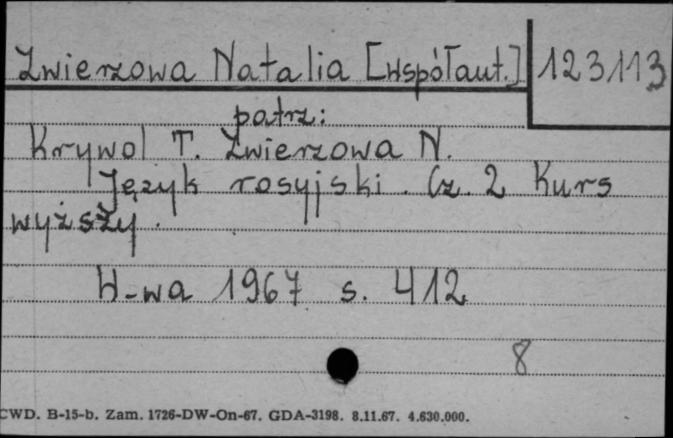 Zwierzowa Natalia [współaut.] 123113
patrz:
Krywol T. Zwierzowa N.
Język rosyjski. Cz. 2 Kurs
wyższy.
W-wa 1967 s. 412
8
CWD. B-15-b. Zam. 1726-DW-On-67. GDA-3198. 8.11.67. 4.630.000.